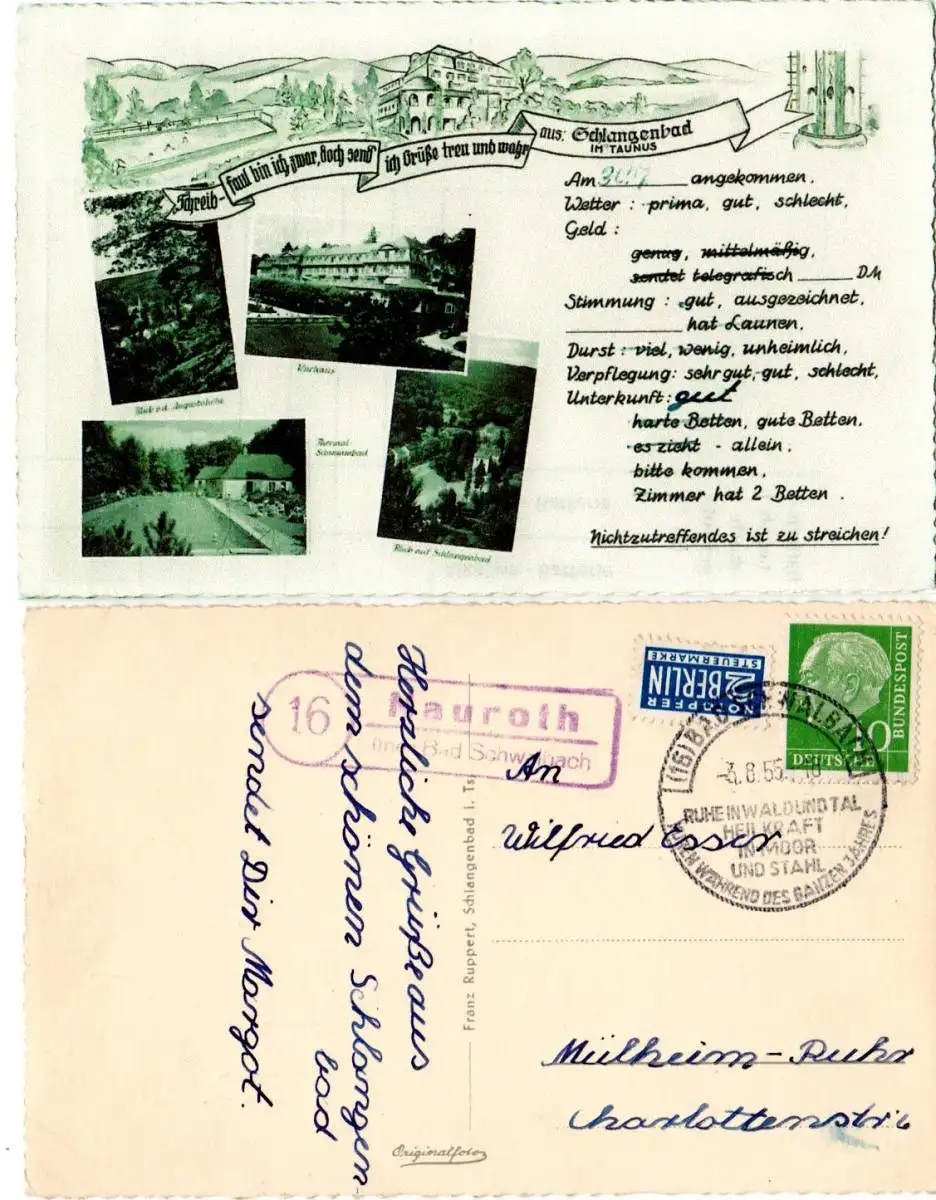 Schreib-
faul bin ich zwar, doch send
ich Grüße treu und wahr
aus: Schlangenbad
IM TAUNUS
Am angekommen.
Wetter : prima, gut, schlecht,
Geld :
genug, mittelmäßig,
sendet telegrafisch ______ DM
Stimmung : gut, ausgezeichnet,
____________ hat Launen,
Durst : viel, wenig, unheimlich,
Verpflegung: sehr gut, gut, schlecht,
Unterkunft: gut
harte Betten, gute Betten.
es zieht - allein.
bitte kommen,
Zimmer hat 2 Betten .
Nichtzutreffendes ist zu streichen!
Blick v.d. Augustahöhe
Kurhaus
Thermal-
Schwimmbad
Blick auf Schlangenbad
Herzliche Grüße aus
dem schönen Schlangen-
bad
sendet Dir Margot.
16
Nauroth
über Bad Schwalbach
Franz Ruppert, Schlangenbad i. Ts.
Originalfoto
NOTOPFER
2 BERLIN
STEUERMARKE
DEUTSCHE
BUNDESPOST
10
(16) BAD SCHWALBACH
8.55
RUHE IN WALD UND TAL
HEILKRAFT
IN MOOR
UND STAHL
KUREN WÄHREND DES GANZEN JAHRES
An
Wilfried Esser
Mülheim-Ruhr
Charlottenstr